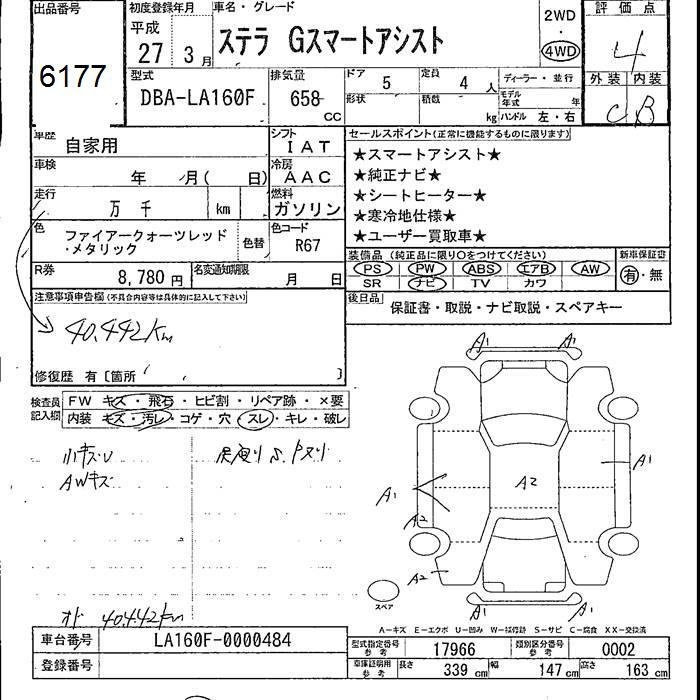 出品番号
6177
初度登録年月
平成
27 3月
車名・グレード
ステラ Gスマートアシスト
2WD
・
4WD
評価点
4
外装 内装
C B
型式
DBA-LA160F
排気量
658 CC
ドア 5
定員 4 人
ディーラー・並行
形状
積数 kg
モデル年式 年
ハンドル 左・右
車歴 自家用
シフト IAT
車検 年 月( 日)
冷房 AAC
走行 万 千 km
燃料 ガソリン
色 ファイアークォーツレッド・メタリック
色替
色コード R67
R券 8,780 円
名変通知期限 月 日
セールスポイント(正常に機能するものに限ります)
★スマートアシスト★
★純正ナビ★
★シートヒーター★
★寒冷地仕様★
★ユーザー買取車★
装備品 (純正品に限り○をつけてください)
PS PW ABS エアB AW
SR ナビ TV カワ
新車保証書
有・無
後日品 保証書・取説・ナビ取説・スペアキー
注意事項申告欄(不具合内容等は具体的に記入して下さい)
40.442km
修復歴 有〔箇所 〕
検査員記入欄
FW キズ・飛石・ヒビ割・リペア跡・×要
内装 キズ・汚レ・コゲ・穴・スレ・キレ・破レ
小キズU
AWキズ
A1 A1
A1
A1
A2
A2
A2
A1 A1
スペア
オド 40442km
A−キズ E−エクボ U−凹み W−補修跡 S−サビ C−腐食 XX−交換済
車台番号 LA160F-0000484
登録番号
型式指定番号参考 17966
類別区分番号参考 0002
車庫証明用参考 長さ 339 cm 幅 147 cm 高さ 163 cm